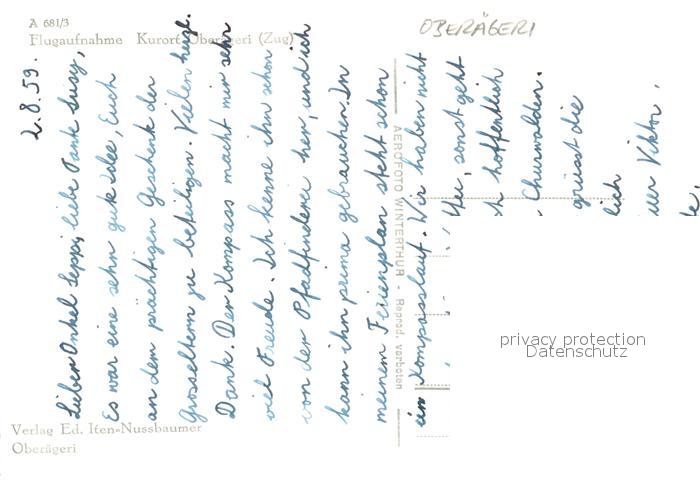 A 681/3
Flugaufnahme Kurort Oberägeri (Zug)
OBERÄGERI
2.8.59.
Lieber Onkel Seppi, liebe Tante Susy,
Es war eine sehr gute Idee, Euch
an dem prächtigen Geschenk der
Grosseltern zu beteiligen. Vielen herzl.
Dank. Der Kompass macht mir sehr
viel Freude. Ich kenne ihn schon
von der Pfadfinderei her, und ich
kann ihn prima gebrauchen. In
meinem Ferienplan steht schon
ein Kompasslauf. Wir haben nicht
Heu, sonst geht
h hoffentlich
Churwalden.
grüsst die
lich
uer Viktor,
AEROFOTO WINTERTHUR - Reprod. verboten
privacy protection
Datenschutz
Verlag Ed. Iten-Nussbaumer
Oberägeri